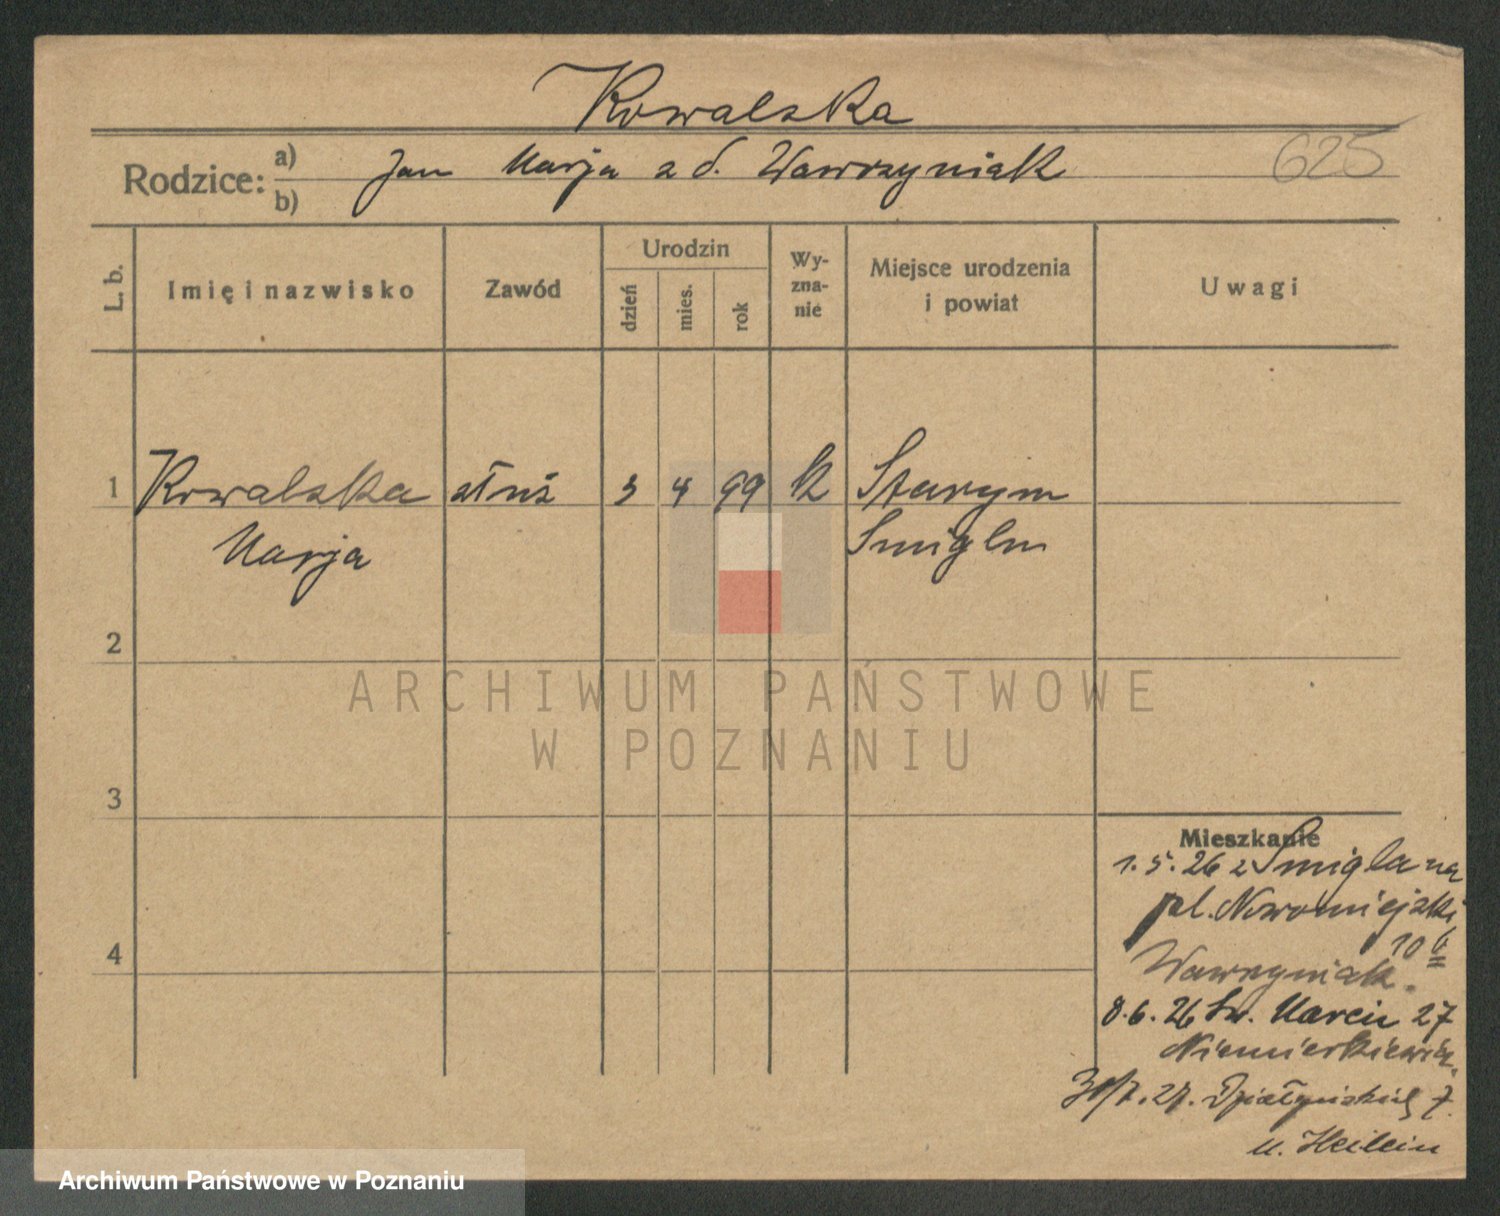 Kowalska
625
Rodzice: a) b) Jan Marja z d. Wawrzyniak
L. b.
Imię i nazwisko
Zawód
Urodzin
dzień
mies.
rok
Wy-
zna-
nie
Miejsce urodzenia
i powiat
Uwagi
1 Kowalska służ 3 4 99 k Starym
Marja Śmiglu
2
ARCHIWUM PAŃSTWOWE
W POZNANIU
3
Mieszkanie
1.5.26 z Śmigla na
pl. Nowomiejski
10
4
Wawrzyniak.
8.6.26 Św. Marcin 27
Niemierkiewicz.
27. Działyńskich 7.
u. Heilein
Archiwum Państwowe w Poznaniu